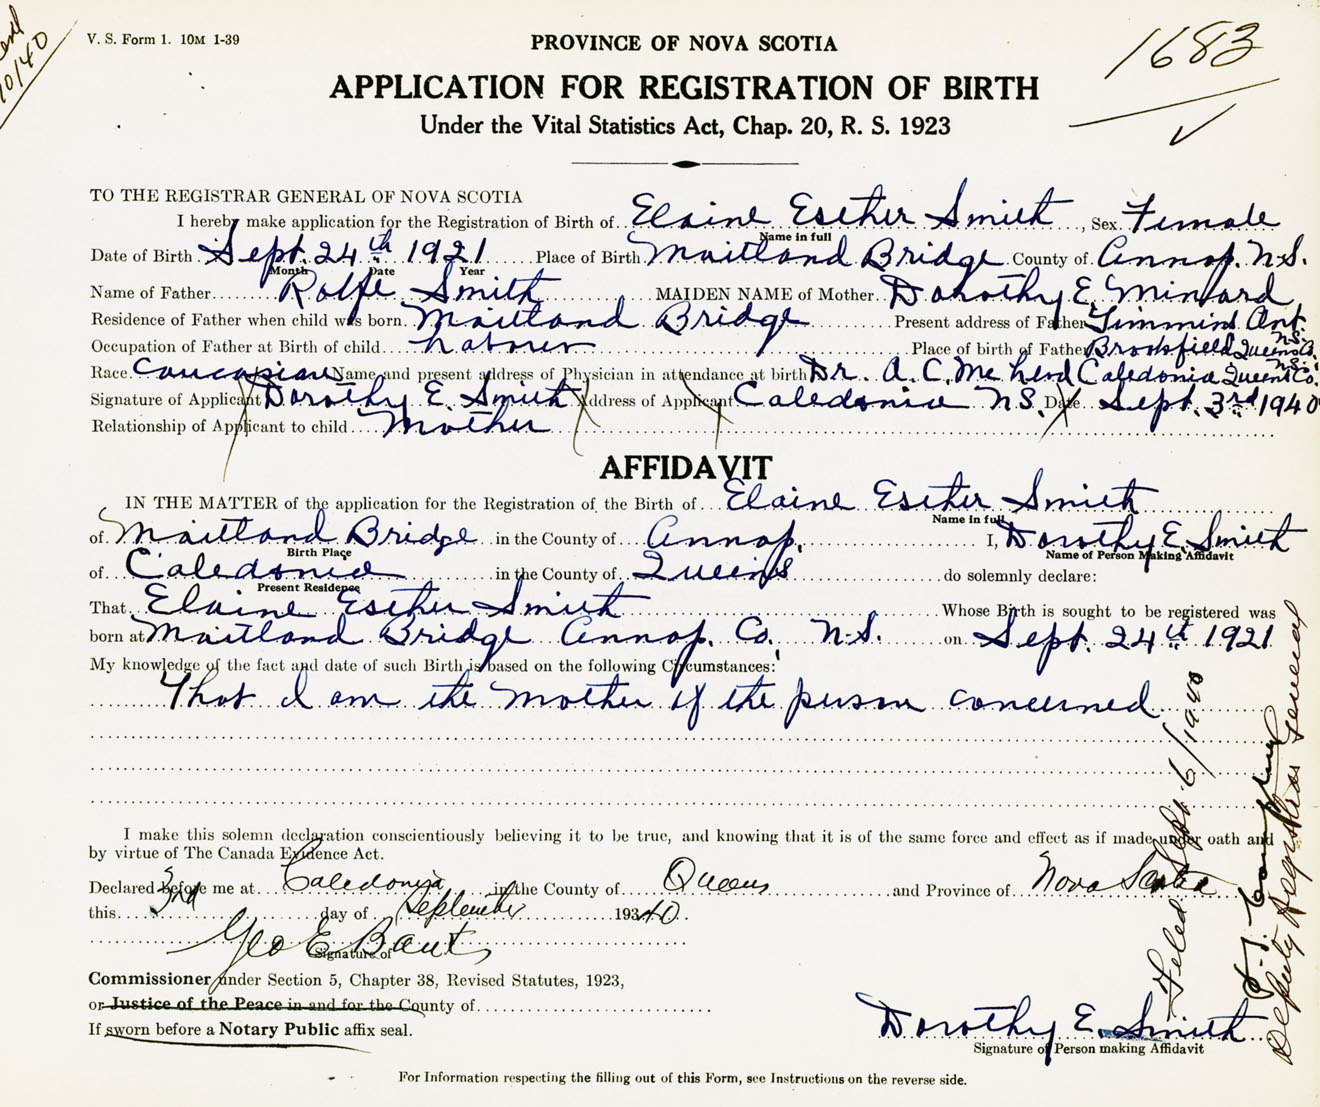 V. S. Form 1. 10M 1-39
PROVINCE OF NOVA SCOTIA
1683
10/40
APPLICATION FOR REGISTRATION OF BIRTH
Under the Vital Statistics Act, Chap. 20, R. S. 1923
TO THE REGISTRAR GENERAL OF NOVA SCOTIA
I hereby make application for the Registration of Birth of Elaine Esther Smith, Sex Female
Name in full
Date of Birth Sept. 24th 1921 Place of Birth Maitland Bridge County of Annap. N.S.
Month Date Year
Name of Father Rolfe Smith MAIDEN NAME of Mother Dorothy E. Minard
Residence of Father when child was born Maitland Bridge Present address of Father Timmins Ont.
Occupation of Father at Birth of child Laborer Place of birth of Father Brookfield Queens Co. N.S.
Race Caucasian Name and present address of Physician in attendance at birth Dr. A. C. Caledonia Queens Co. N.S.
Signature of Applicant Dorothy E. Smith Address of Applicant Caledonia N.S. Date Sept. 3rd 1940
Relationship of Applicant to child Mother
AFFIDAVIT
IN THE MATTER of the application for the Registration of the Birth of Elaine Esther Smith
Name in full
of Maitland Bridge in the County of Annap. I, Dorothy E. Smith
Birth Place Name of Person Making Affidavit
of Caledonia in the County of Queens do solemnly declare:
Present Residence
That Elaine Esther Smith Whose Birth is sought to be registered was
born at Maitland Bridge Annap. Co. N.S. on Sept. 24th 1921
My knowledge of the fact and date of such Birth is based on the following Circumstances:
That I am the mother of the person concerned
I make this solemn declaration conscientiously believing it to be true, and knowing that it is of the same force and effect as if made under oath and
by virtue of The Canada Evidence Act.
Declared before me at Caledonia in the County of Queens and Province of Nova Scotia
this 3rd day of September 19340
Geo E Baut
Signature of
Commissioner under Section 5, Chapter 38, Revised Statutes, 1923,
or Justice of the Peace in and for the County of
If sworn before a Notary Public affix seal.
Dorothy E. Smith
Signature of Person making Affidavit
For Information respecting the filling out of this Form, see Instructions on the reverse side.
Filed Sept. 6/1940
Deputy Registrar General